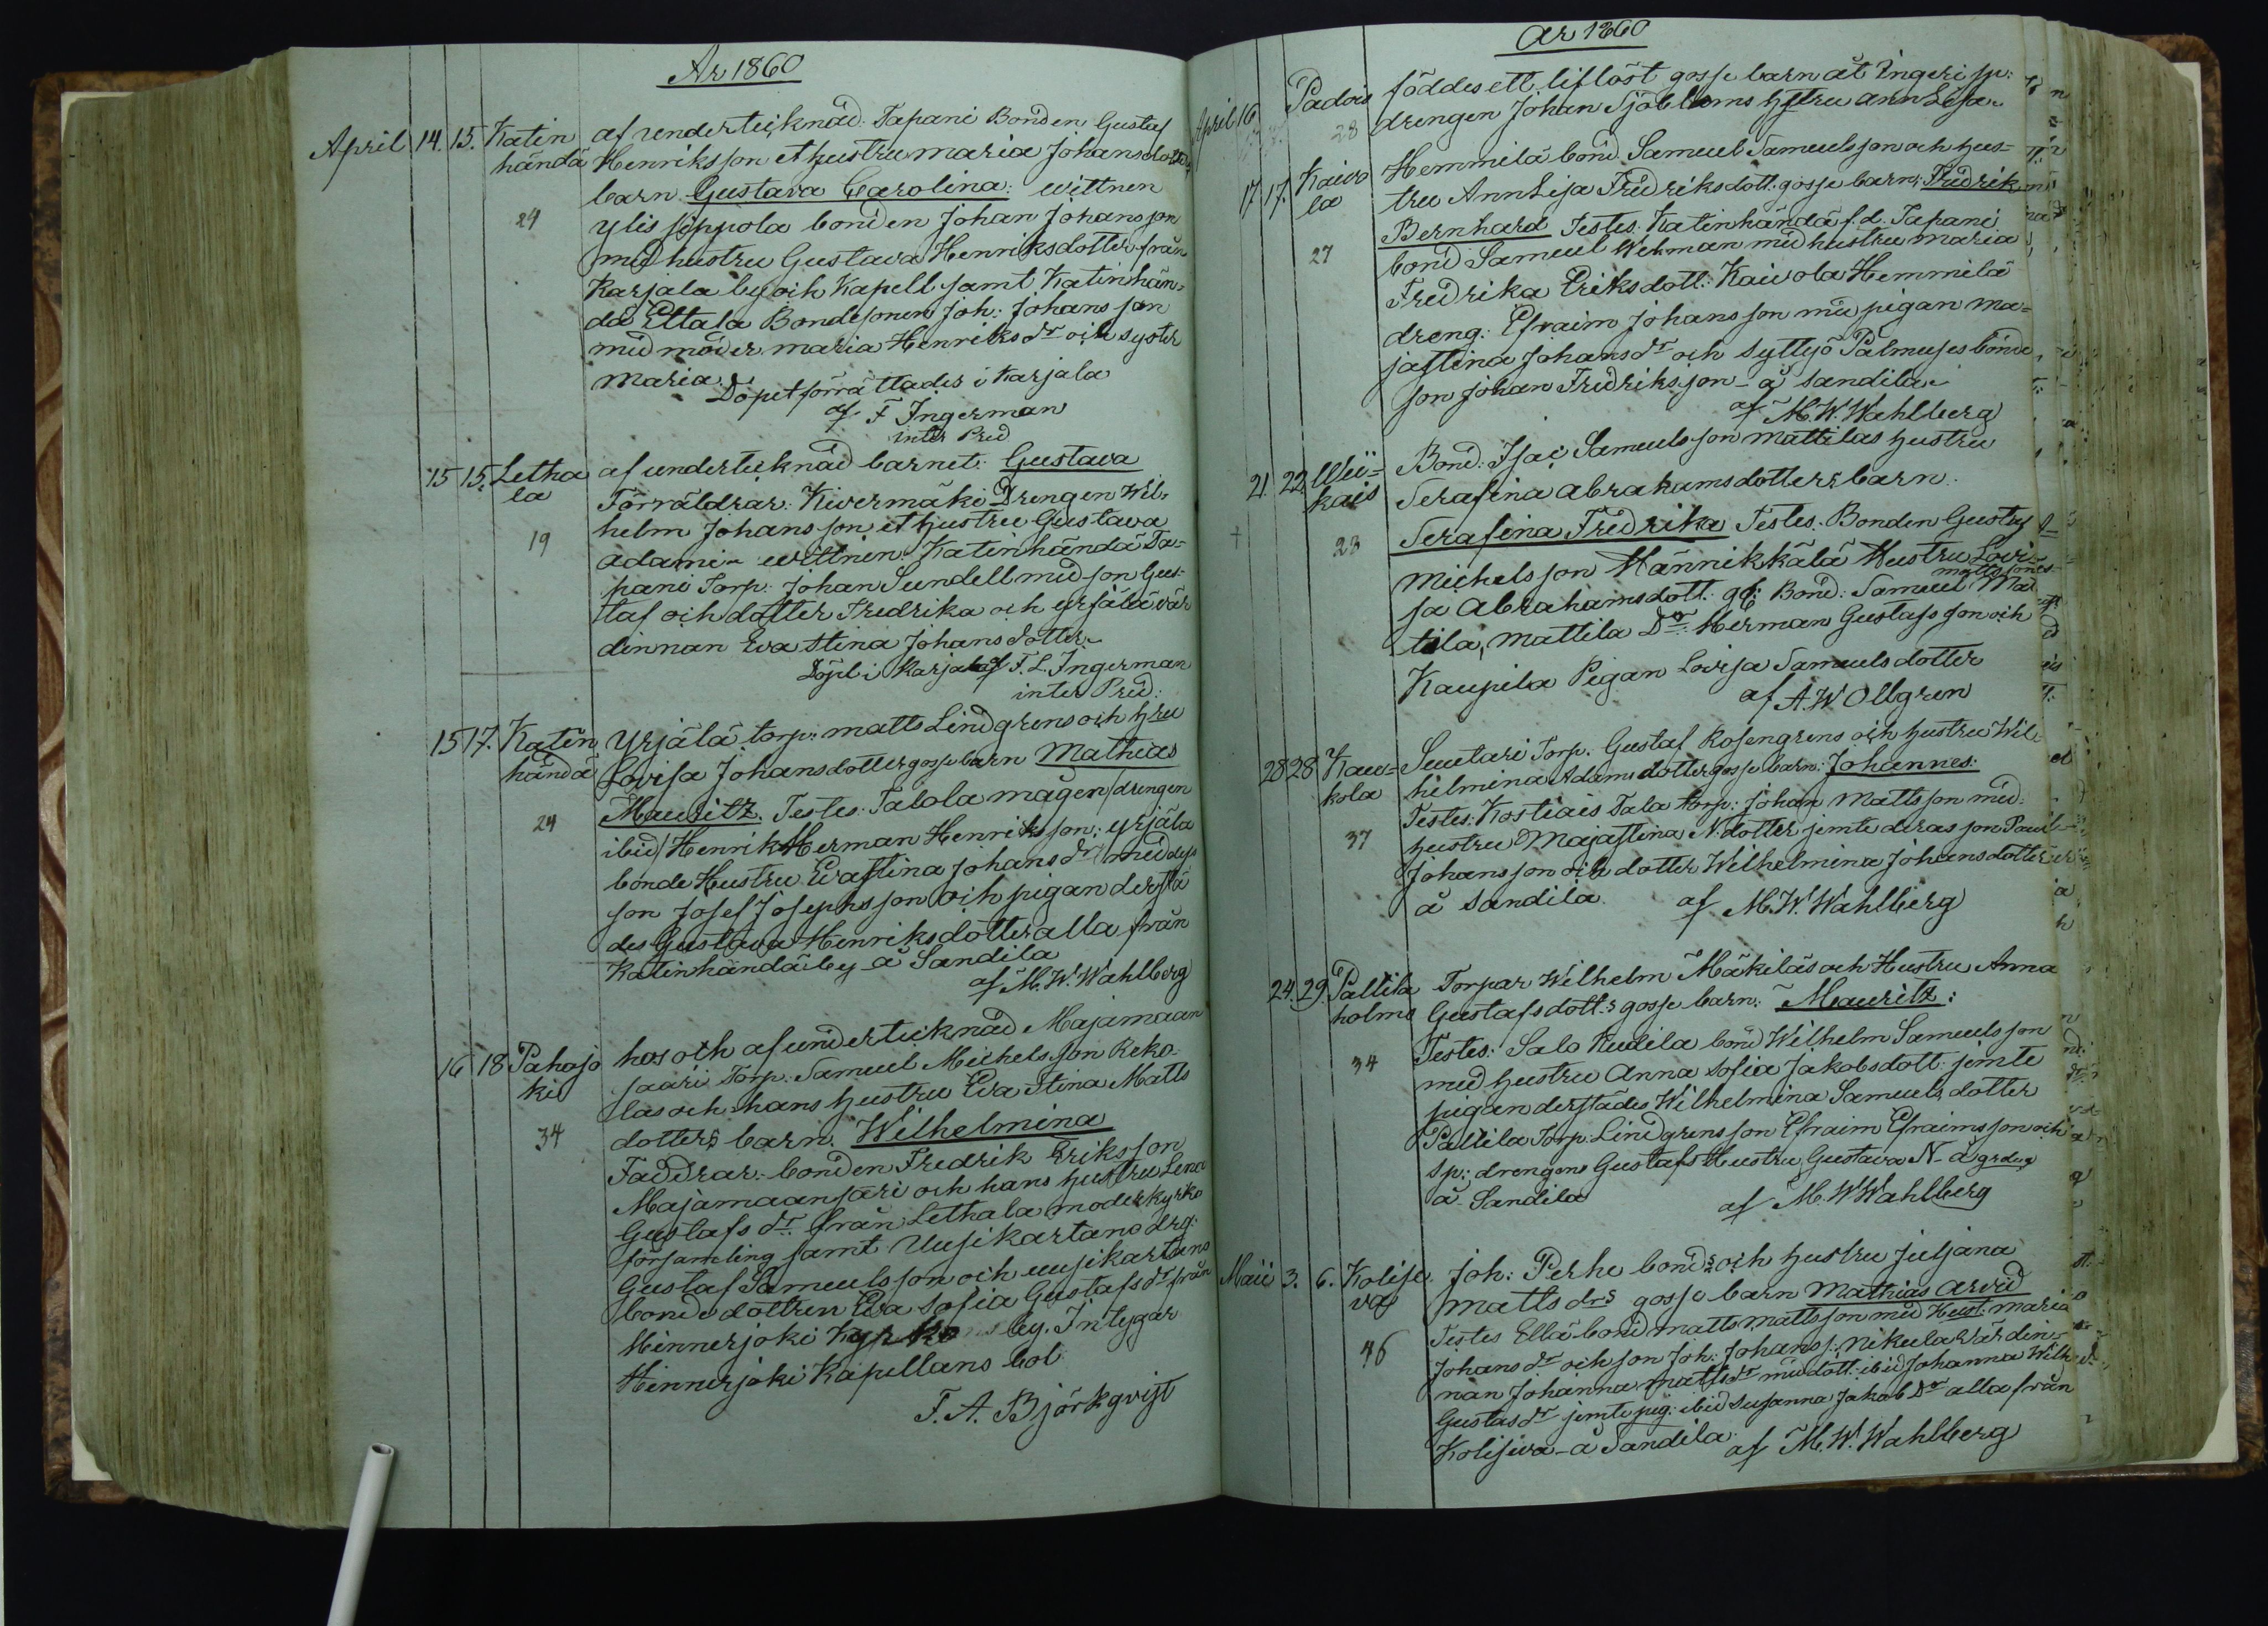 År 1860
April 14. 15. Katin af undertecknad. Tapani Bonden Gustaf
händä Henriksson et hustru maria Johansdotters
barn Gustava Carolina: wittnen
24 ylis sippola bonden Johan Johansson
med hustru Gustava Henriksdotter från
Karjala by och Kapell samt Katinhän=
dä Ettala Bondesonen Joh: Johansson
med moder maria Henriks dr och syster
maria.
Dopet förrättades i Karjala
af F Ingerman
inter Pred
15 15. Letha af undertecknad barnet: Gustava
la Förräldrar: Kivermäki Drengen Wil=
helm Johansson et hustru Gustava
19 adami wittnen Katinhändä Ta=
pani Torp: Johan Sundell med son Gus=
taf och dotter Fredrika och yrjälä vär
dinnan Eva Stina Johansdotter
Döpt i Karjala af F. L. Ingerman
inter Pred:
15 17. Katin yrjälä torp: matts Lindgrens och hru
händä Lovisa Johansdotters gosse barn Mathias
Mauritz. Testes: Talola mågen /drengen
24 ibid/ Henrik Herman Henriksson: yrjälä
bonde Hustru Evastina Johans dr med dess
son Josef Josephsson och pigan derstä
des Gustava Henriksdotter alla från
Katinhändä by å Sandila
af M. W. Wahlberg
16 18 Pahajo hos och af undertecknad Majamaan
ki saari Torp. Samuel Michelsson Keko
las och hans hustru Eva Stina Matts
34 dotters barn. Wilhelmina
Faddrar: bonden Fredrik Eriksson
Majamaansari och hans hustru Lena
Gustafs dr från Lethala moderkyrko
församling samt Uusikartano drg:
Gustaf Samuelsson och uusikartano
bonde dottren Eva Sofia Gustafs dr från
Hinnerjoki by. Intygar
Hinnerjoki Kapellans bol
F. A. Björkqvist
År 1860
April 16 Padois föddes ett liflöst gosse barn åt Ingeri sp:
28 drengen Johan Sjöbloms hstru Ann Lisa
17 17. Kaivo Hemmilä bond. Samuel Samuelsson och hus=
la tru Ann Lisa Fredriksdott. gosse barn: Fredrik
Bernhard Testes. Katinhändä f.d. Tapani
27 bond Samuel Wehman med hustru maria
Fredrika Eriksdott: Kaivola Hemmilä
dreng: Efraim Johansson med pigan ma=
jastina Johans dr och Syttyö Palmuses bonde
son Johan Fredriksson å sandila
af M. W. Wahlberg
21. 22. Bond: Isac Samuelsson mattilas hustru
kais Serafina abrahamsdotters barn.
28 Serafina Fredrika Testes. Bonden Gustaf
michelsson Männikkälä Hustru Lovi=
sa Abrahamsdott. gb: Bond: Samuel mattssones Mat
tila, mattila Dr: Herman Gustafsson och
Kaupila Pigan Lovisa Samuelsdotter
af A. W Ollgren
28 28 Kau= Suutari Torp. Gustaf Rosengrens och hustru Wil
kola helmina Adamsdotter gosse barn: Johannes.
Testes: Kostiais Tala torp: Johan Mattsson med
37 hustru Majastina N. dotter jemte deras son Paul
Johansson och dotter Wilhelmina Johansdotter
å Sandila. af M. W. Wahlberg
24. 29. Pallila Torpar Wilhelm Mäkiläs och Hustru Anna
holma Gustafsdott:s gosse barn: Mauritz:
34 Testes: Salo Kudila bond Wilhelm Samuelsson
med hustru Anna Sofia Jakobsdott: jemte
pigan derstädes Wilhelmina Samuelsdotter
Pallila Torp: Lindgrens son Efraim Efraimsson och
sp: drengens Gustafs Hustru Gustava N- å
å Sandila af M. W Wahlberg
Maii 3. 6. Kolise Joh: Perhe bond:s och hustru Juljana
va matts drs gosse barn Mathias Arvid
46 Testes Ellä bond matts mattsson med Hust: maria
Johans dr och son Joh: Johanss: nikula värdin=
nan Johanna matts dr med dott: ibid Johanna Wilh
Gustas dr jemte pig: ibid Susanna Jakob Dr alla från
Kolisiva å Sandila. af M. W. Wahlberg